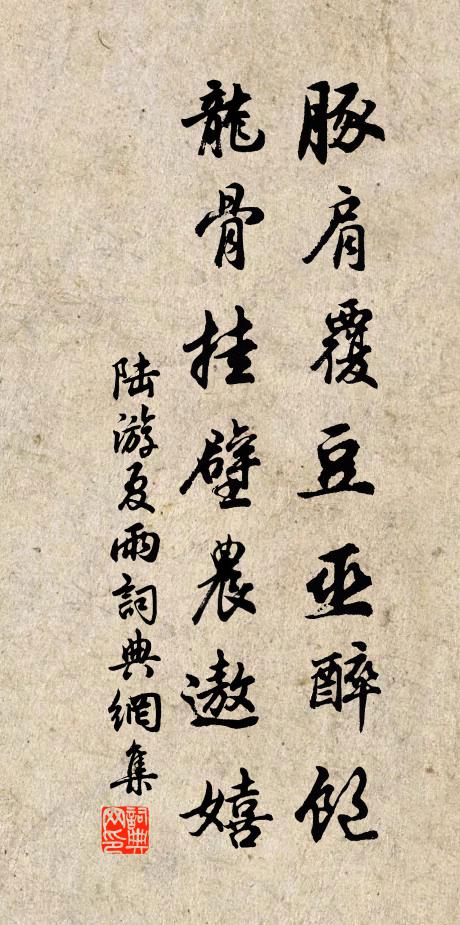 豚肩覆豆巫醉飽
龍骨挂壁農遨嬉
陆游夏雨詞典網集
詞典网印